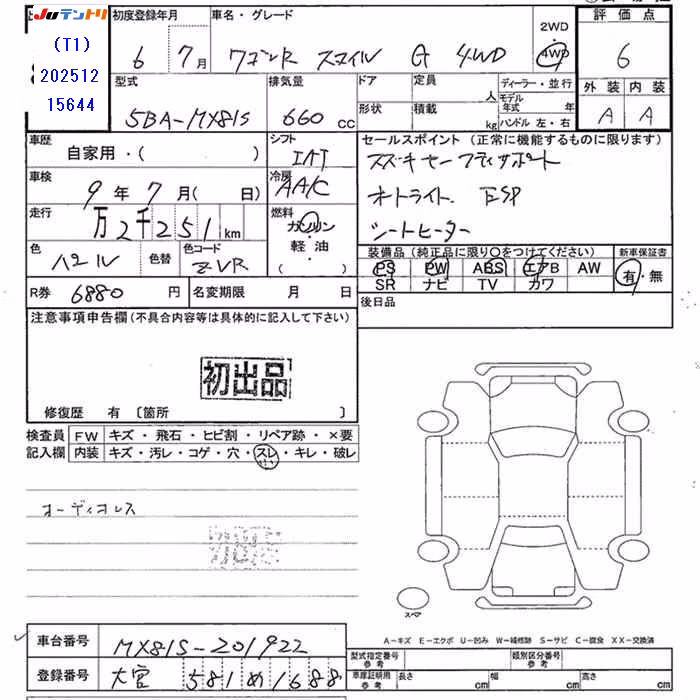 JUテントリ
(T1)
202512
15644
初度登録年月
車名・グレード
2WD
4WD
評価点
6 7月
ワゴンR スマイル G 4WD
6
外装 内装
A A
型式
排気量
ドア
定員
人
ディーラー・並行
モデル年式 年
形状
積載
kg
ハンドル 左・右
5BA-MX81S
660 cc
車歴
自家用・( )
シフト
IAT
セールスポイント (正常に機能するものに限ります)
スズキセーフティサポート
オートライト ESP
シートヒーター
車検
9年7月( 日)
冷房
AA/C
走行
万2千251km
燃料
ガソリン
軽・油
( )
色
パール
色替
色コード
ZVR
装備品 (純正品に限り○をつけてください)
PS PW ABS エアB AW
SR ナビ TV カワ
新車保証書
有・無
R券 6880円
名変期限 月 日
後日品
注意事項申告欄(不具合内容等は具体的に記入して下さい)
初出品
修復歴 有 〔箇所 〕
検査員記入欄
FW キズ・飛石・ヒビ割・リペア跡・×要
内装 キズ・汚レ・コゲ・穴・スレ・キレ・破レ
小
オーディオレス
初出品
スペア
A-キズ E-エクボ U-凹み W-補修跡 S-サビ C-腐食 XX-交換済
車台番号 MX81S-201922
登録番号 大宮 581 め1688
型式指定番号 参考
類別区分番号 参考
車庫証明用 参考
長さ cm
幅 cm
高さ cm